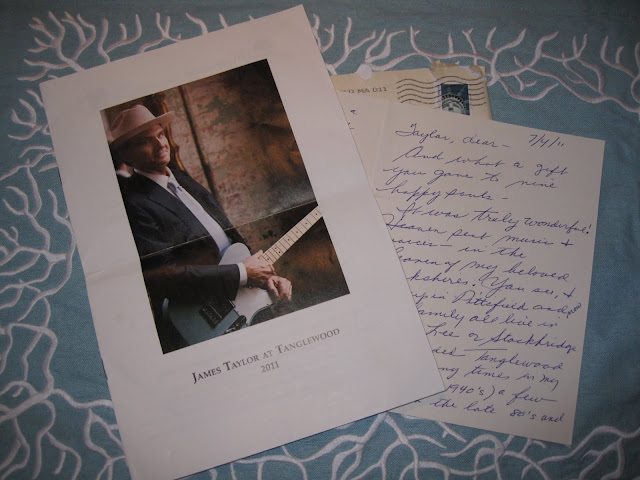 JAMES TAYLOR AT TANGLEWOOD
2011
P&DC 021
7/4/11
Taylor, dear -
And what a gift
you gave to nine
happy souls -
It was truly wonderful!
Heaven sent music &
in the
of my beloved
You see, I
up in Pittsfield and
family all live in
Lee or Stockbridge
Tanglewood
many times in my
(1940's) a few
the late 80's and